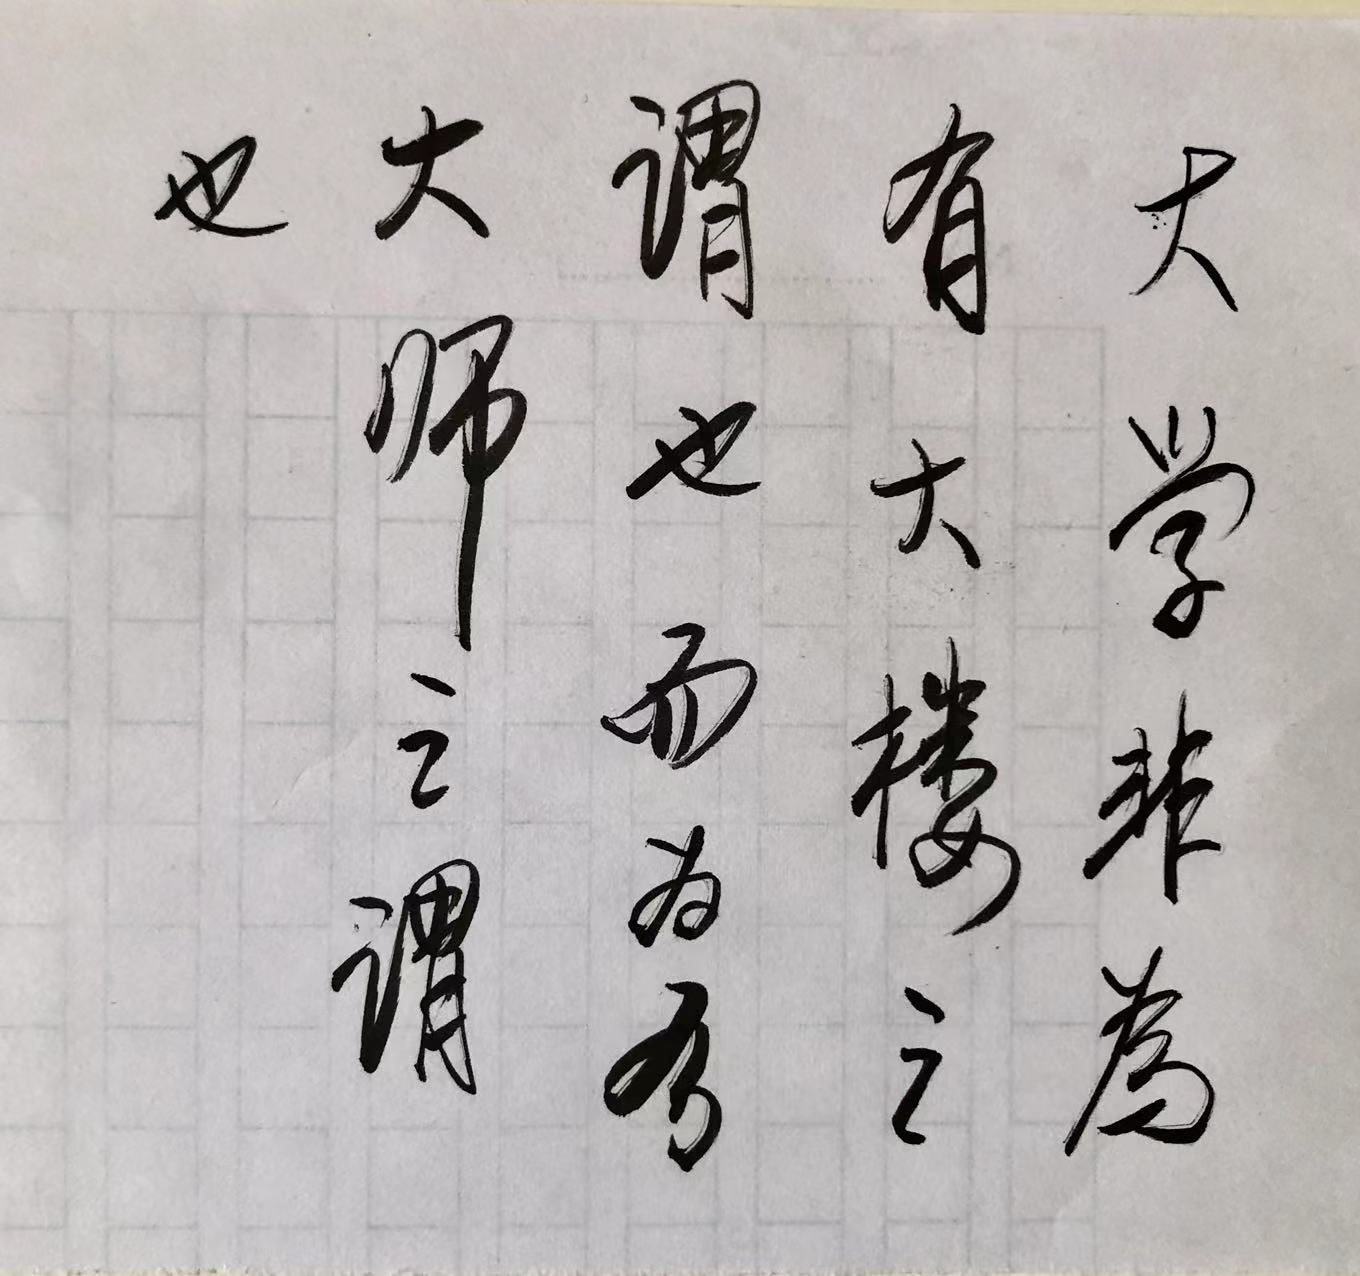 大学非為
有大楼之
谓也而为有
大师之谓
也